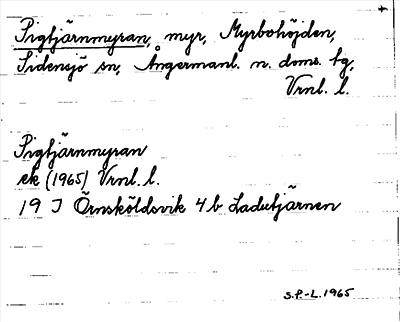 Pigtjärnmyran, myr, Myrbohöjden,
Sidensjö sn, Ångermanl. n. doms. tg,
Vrnl. l.
Pigtjärnmyran
ek (1965) Vrnl. l.
19 J Örnsköldsvik 4 b Ladutjärnen
S.P.-L. 1965